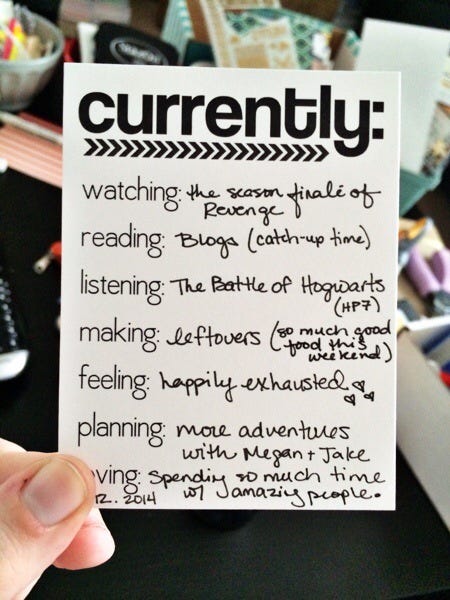 currently:
watching: the season finalé of
Revenge
reading: Blogs (catch-up time)
listening: The Battle of Hogwarts
(HP7)
making: leftovers (so much good
food this
weekend)
feeling: happily exhausted
planning: more adventures
with Megan + Jake
oving: spending so much time
12. 2014 w/ amazing people.